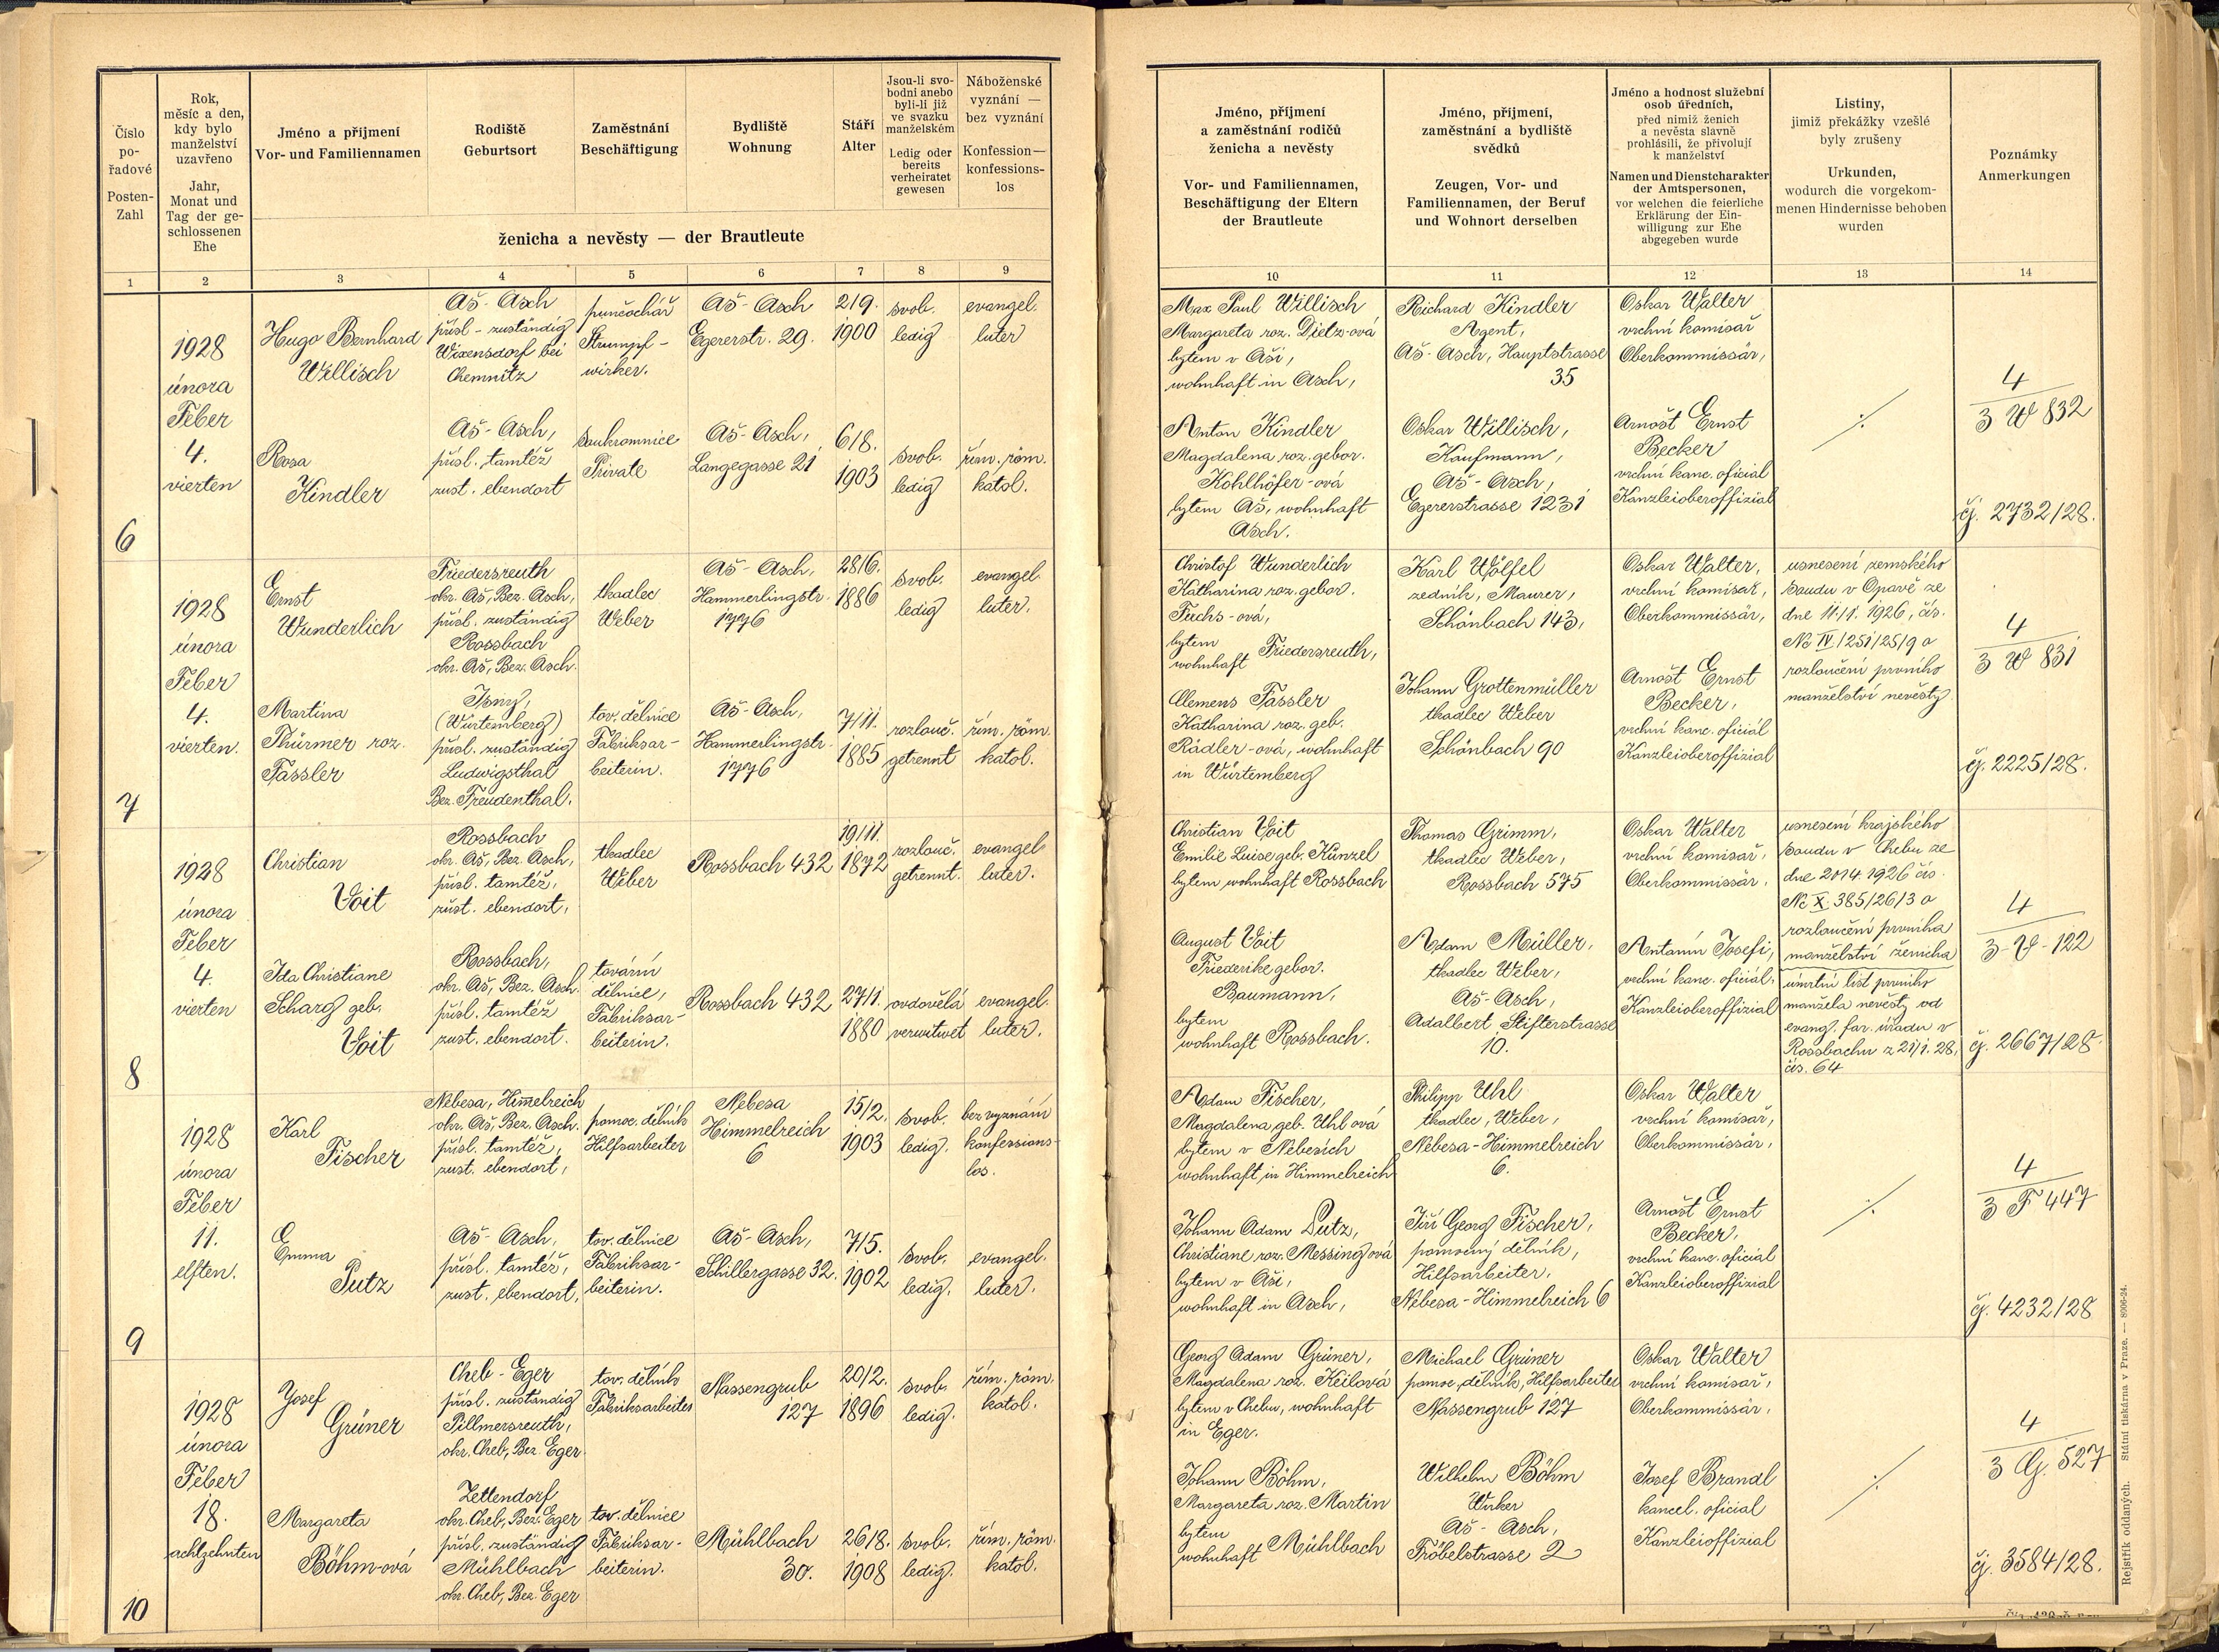 Číslo
po-
řadové
Posten-
Zahl
Rok,
měsíc a den,
kdy bylo
manželství
uzavřeno
Jahr,
Monat und
Tag der ge-
schlossenen
Ehe
Jméno a příjmení
Vor- und Familiennamen
Rodiště
Geburtsort
Zaměstnání
Beschäftigung
Bydliště
Wohnung
Stáří
Alter
Jsou-li svo-
bodni anebo
byli-li již
ve svazku
manželském
Ledig oder
bereits
verheiratet
gewesen
Náboženské
vyznání —
bez vyznání
Konfession—
konfessions-
los
ženicha a nevěsty — der Brautleute
1 2 3 4 5 6 7 8 9
6
1928
února
Feber
4.
vierten
Hugo Bernhard
Willisch
Aš-Asch
přísl - zuständig
Wixensdorf bei
Chemnitz
punčochář
Strumpf-
wirker.
Aš-Asch
Egererstr. 29.
2/9.
1900
svob.
ledig
evangel.
luter
Rosa
Kindler
Aš-Asch,
přísl. tamtéž
zust. ebendort
soukromnice
Private
Aš-Asch,
Langegasse 21
6/8.
1903
svob.
ledig
řím. röm.
katol.
7
1928
února
Feber
4.
vierten.
Ernst
Wunderlich
Friedersreuth
okr. Aš, Bez. Asch,
přísl. zuständig
Rossbach
okr. Aš, Bez. Asch.
tkadlec
Weber
Aš-Asch,
Hammerlingstr.
1776
28/6.
1886
svob.
ledig
evangel.
luter.
Martina
Thürmer roz.
Fässler
Isny,
(Würtemberg)
přísl. zuständig
Ludwigsthal
Bez. Freudenthal.
tov. dělnice
Fabriksar-
beiterin.
Aš-Asch,
Hammerlingstr.
1776
7/11.
1885
rozlouč.
getrennt
řím. röm.
katol.
8
1928
února
Feber
4.
vierten
Christian
Voit
Rossbach
okr. Aš, Bez. Asch,
přísl. tamtéž,
zust. ebendort,
tkadlec
Weber
Rossbach 432
19/11.
1872
rozlouč.
getrennt.
evangel.
luter.
Ida Christiane
Scharg geb.
Voit
Rossbach,
okr. Aš, Bez. Asch.
přísl. tamtéž
zust. ebendort.
tovární
dělnice,
Fabriksar-
beiterin.
Rossbach 432
27/1.
1880
ovdovělá
verwitwet
evangel.
luter.
9
1928
února
Feber
11.
elften.
Karl
Fischer
Nebesa, Himmelreich
okr. Aš, Bez. Asch.
přísl. tamtéž,
zust. ebendort,
pomoc. dělník
Hilfsarbeiter
Nebesa
Himmelreich
6
15/2.
1903
svob.
ledig.
bez vyznání
konfessions-
los.
Emma
Putz
Aš-Asch,
přísl. tamtéž,
zust. ebendort,
tov. dělnice
Fabriksar-
beiterin.
Aš-Asch,
Schillergasse 32.
7/5.
1902
svob.
ledig.
evangel.
luter.
10
1928
února
Feber
18.
achtzehnten
Josef
Grüner
Cheb-Eger
přísl. zuständig
Pillmersreuth,
okr. Cheb, Bez. Eger.
tov. dělník
Fabriksarbeiter
Nassengrub
127
20/2.
1896
svob.
ledig.
řím. röm.
katol.
Margareta
Böhm-ová
Zettendorf
okr. Cheb, Bez. Eger
přísl. zuständig
Mühlbach
okr. Cheb, Bez. Eger
tov. dělnice
Fabriksar-
beiterin.
Mühlbach
30.
26/8.
1908
svob.
ledig.
řím. röm.
katol.
Jméno, příjmení
a zaměstnání rodičů
ženicha a nevěsty
Vor- und Familiennamen,
Beschäftigung der Eltern
der Brautleute
Jméno, příjmení,
zaměstnání a bydliště
svědků
Zeugen, Vor- und
Familiennamen, der Beruf
und Wohnort derselben
Jméno a hodnost služební
osob úředních,
před nimiž ženich
a nevěsta slavně
prohlásili, že přivolují
k manželství
Namen und Dienstcharakter
der Amtspersonen,
vor welchen die feierliche
Erklärung der Ein-
willigung zur Ehe
abgegeben wurde
Listiny,
jimiž překážky vzešlé
byly zrušeny
Urkunden,
wodurch die vorgekom-
menen Hindernisse behoben
wurden
Poznámky
Anmerkungen
10 11 12 13 14
Max Paul Willisch
Margareta roz. Dietz-ová
bytem v Aši,
wohnhaft in Asch,
Richard Kindler
Agent,
Aš-Asch, Hauptstrasse
35
Oskar Walter
vrchní komisař
Oberkommissär,
Anton Kindler
Magdalena roz. gebor.
Kohlhöfer-ová
bytem Aš, wohnhaft
Asch.
Oskar Willisch,
Kaufmann,
Aš-Asch,
Egererstrasse 1231
Arnošt Ernst
Becker
vrchní kanc. oficiál
Kanzleioberoffizial
./.
4
3 W 832
čj. 2732/28.
Christof Wunderlich
Katharina roz. gebor.
Fuchs-ová,
bytem
wohnhaft Friedersreuth,
Karl Wölfel
zedník, Maurer,
Schönbach 143,
Oskar Walter,
vrchní komisař,
Oberkommissär,
Clemens Fässler
Katharina roz. geb.
Rädler-ová, wohnhaft
in Würtemberg
Johann Grottenmüller
tkadlec Weber
Schönbach 90
Arnošt Ernst
Becker,
vrchní kanc. oficiál
Kanzleioberoffizial
usnesení zemského
soudu v Opavě ze
dne 11./1. 1926, čís.
Nc IV/251/25/9 o
rozloučení prvního
manželství nevěsty
4
3 W 831
čj. 2225/28.
Christian Voit
Emilie Luise geb. Künzel
bytem wohnhaft Rossbach
Thomas Grimm,
tkadlec Weber,
Rossbach 575
Oskar Walter
vrchní komisař,
Oberkommissär,
August Voit
Friederike gebor.
Baumann,
bytem
wohnhaft Rossbach.
Adam Müller,
tkadlec Weber,
Aš-Asch,
Adalbert Stifterstrasse
10.
Antonín Josefi,
vrchní kanc. oficiál,
Kanzleioberoffizial
usnesení krajského
soudu v Chebu ze
dne 20/4. 1926 čís.
Nc X 385/26/3 o
rozloučení prvního
manželství ženicha
úmrtní list prvního
manžela nevěsty od
evang. far. úřadu v
Rossbachu z 21/1. 28,
čís. 64
4
3-V-122
čj. 2667/28.
Adam Fischer,
Magdalena geb. Uhl ová
bytem v Nebesích
wohnhaft in Himmelreich
Philipp Uhl
tkadlec, Weber,
Nebesa-Himmelreich
6.
Oskar Walter
vrchní komisař,
Oberkommissär,
Johann Adam Putz,
Christiane roz. Messing ová
bytem v Aši,
wohnhaft in Asch,
Jiří Georg Fischer,
pomocný dělník,
Hilfsarbeiter,
Nebesa-Himmelreich 6
Arnošt Ernst
Becker,
vrchní kanc. oficiál
Kanzleioberoffizial
./.
4
3 F 447
čj. 4232/28
Georg Adam Grüner,
Magdalena roz. Keilová
bytem v Chebu, wohnhaft
in Eger.
Michael Grüner
pomoc. dělník, Hilfsarbeiter
Nassengrub 127
Oskar Walter
vrchní komisař,
Oberkommissär,
Johann Böhm,
Margareta roz. Martin
bytem
wohnhaft Mühlbach
Wilhelm Böhm
Wirker
Aš-Asch,
Fröbelstrasse 2
Josef Brandl
kancel. oficial
Kanzleioffizial
./.
4
3 G. 527
čj. 3584/28.
Rejstřík oddaných. Státní tiskárna v Praze. — 8906-24.